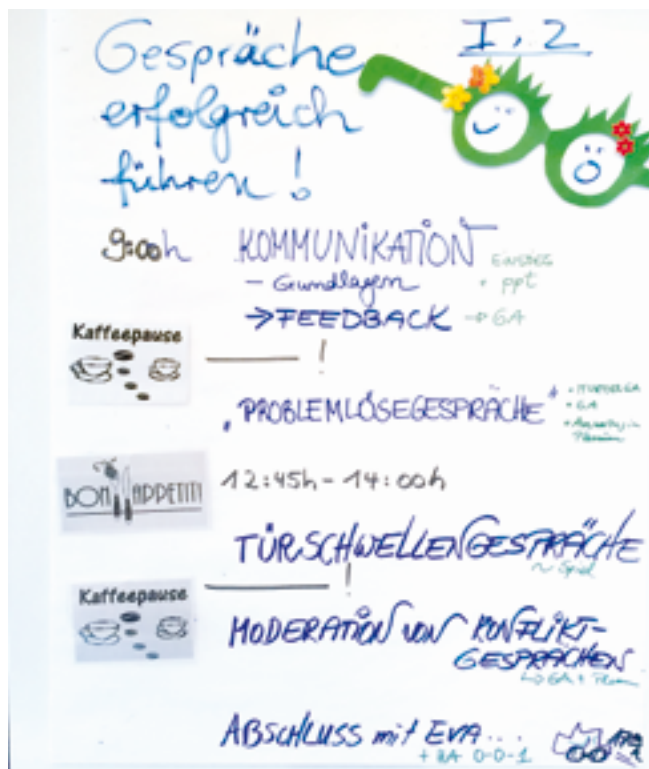 Gespräche I, 2
erfolgreich
führen!
9:00h KOMMUNIKATION Einstieg
- Grundlagen + ppt
→ FEEDBACK → GA
Kaffeepause !
"PROBLEMLÖSEGESPRÄCHE"
+ GA
Plenum
BON APPETIT! 12:45h - 14:00h
TÜRSCHWELLENGESPRÄCHE
~ Spiel
Kaffeepause !
MODERATION VON KONFLIKT-
GESPRÄCHEN
↳ GA + Plenum
ABSCHLUSS mit EVA...
+ HA 0-0-1